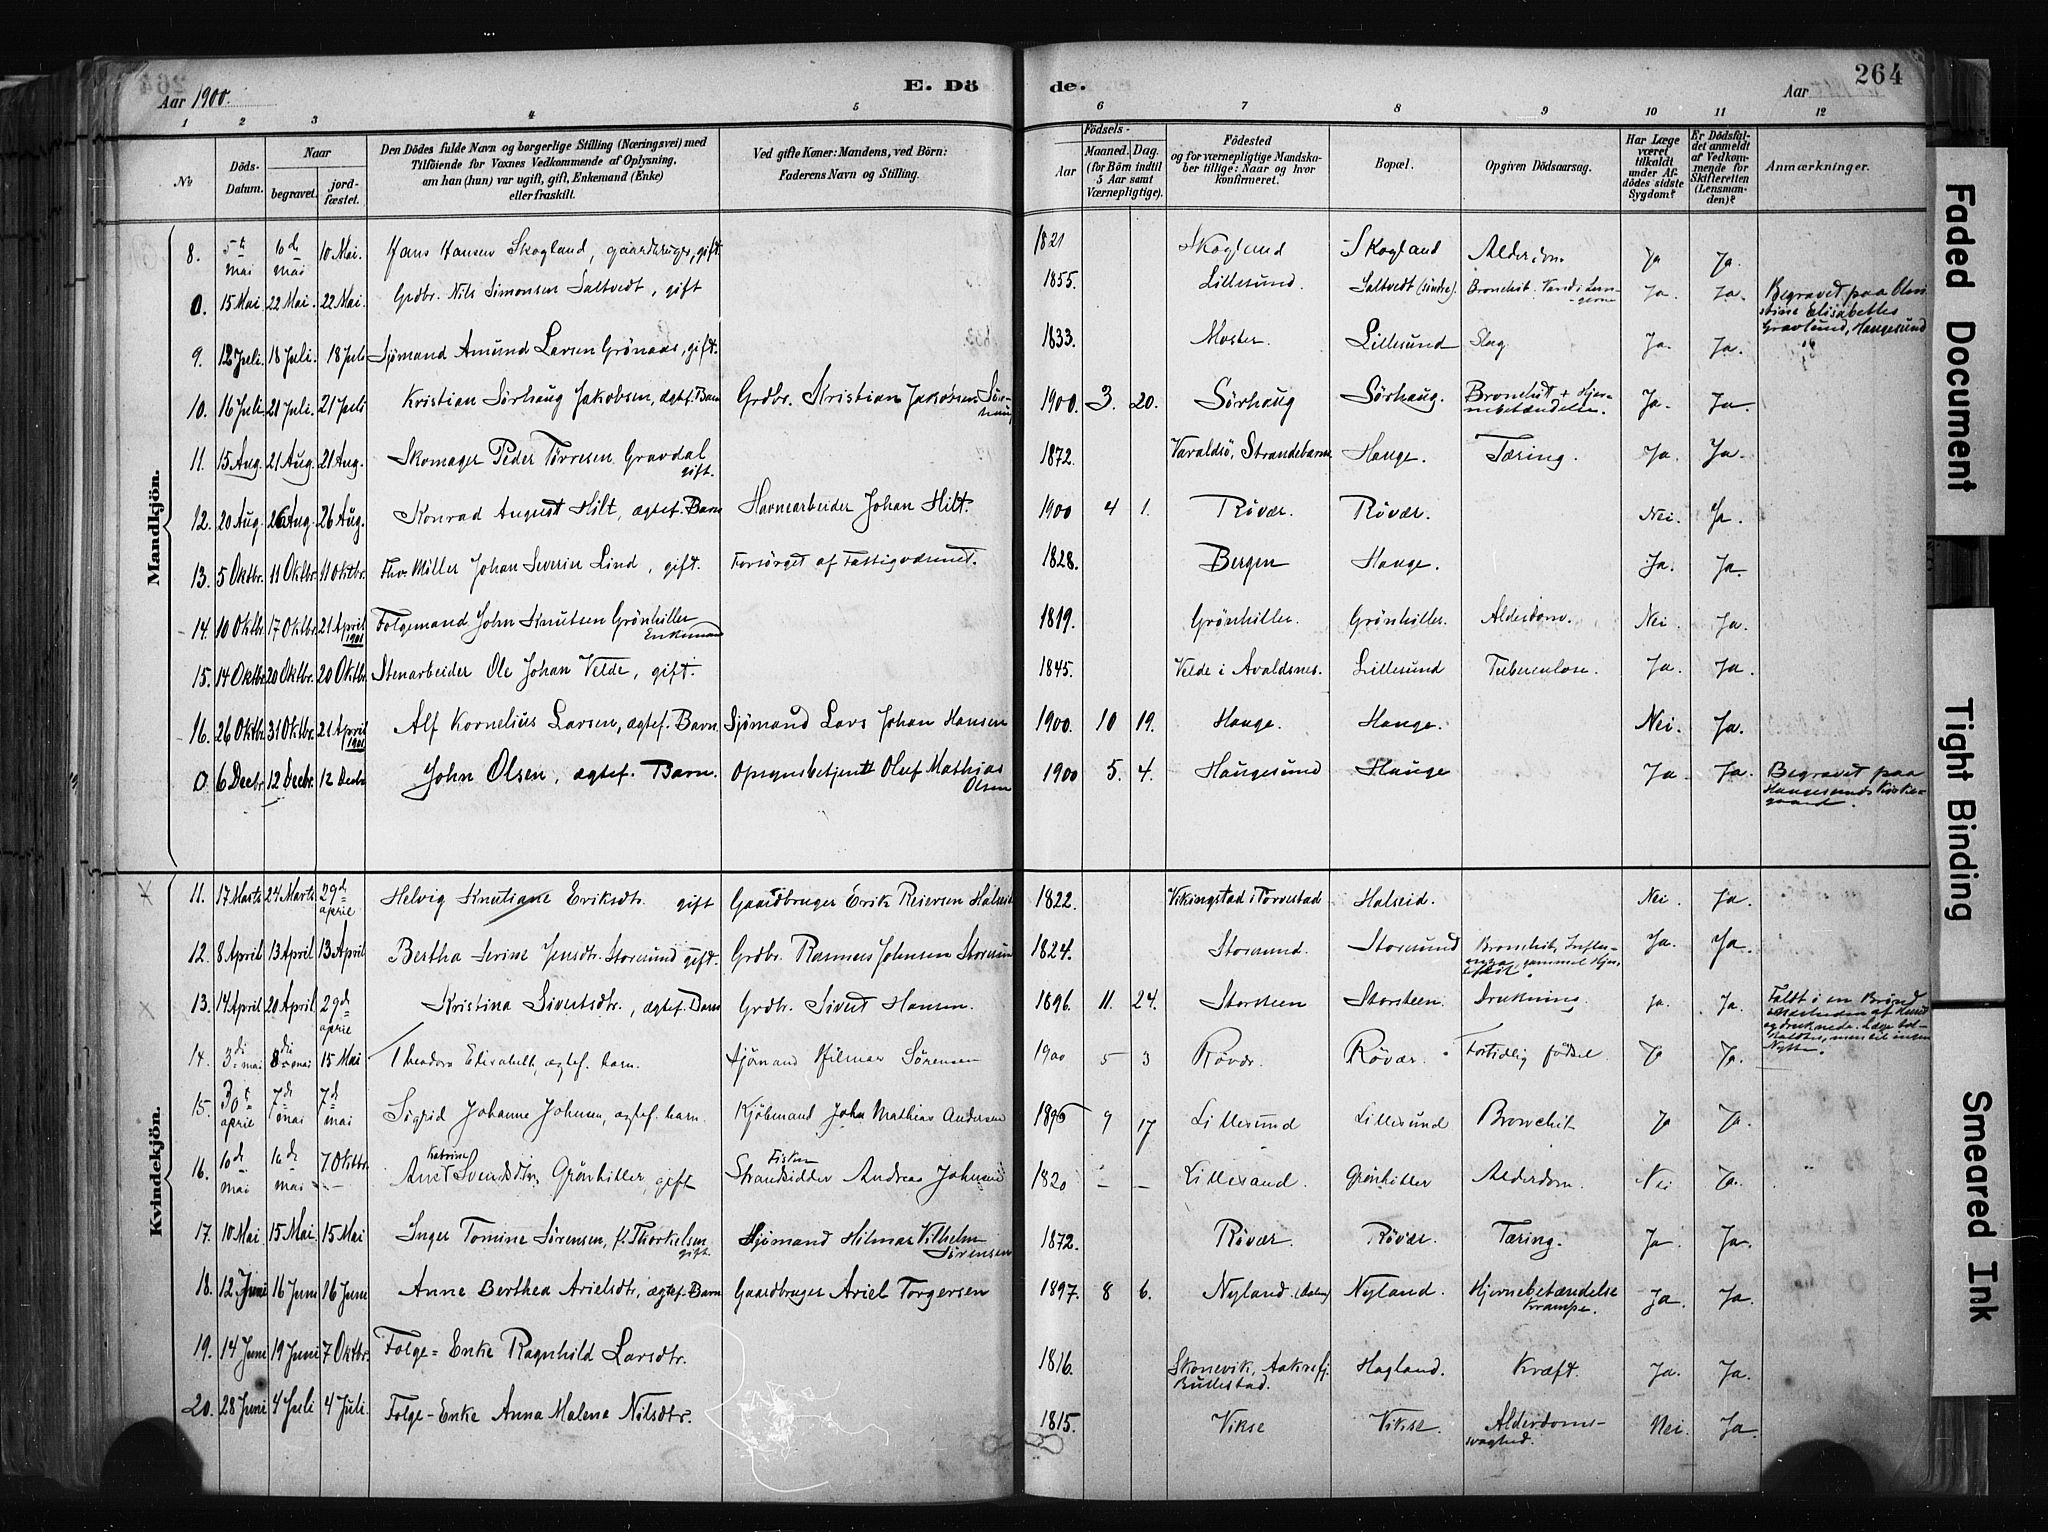 264
Aar 1900.
E. Döde.
Aar
1 2 3 4 5 6 7 8 9 10 11 12
No
Döds-Datum.
Naar
begravet.
jordfæstet.
Den Dödes fulde Navn og borgerlige Stilling (Næringsvei) med
Tilföiende for Voxnes Vedkommende af Oplysning,
om han (hun) var ugift, gift, Enkemand (Enke)
eller fraskilt.
Ved gifte Koner: Mandens, ved Börn:
Faderens Navn og Stilling.
Födsels-
Aar
Maaned. Dag.
(for Börn indtil
5 Aar samt
Værnepligtige).
Födested
og for værnepligtige Mandska-
ber tillige: Naar og hvor
konfirmeret.
Bopæl.
Opgiven Dödsaarsag.
Har Læge
været
tilkaldt
under Af-
dödes sidste
Sygdom?
Er Dödsfal-
det anmeldt
af Vedkom-
mende for
Skifteretten
(Lensman-
den)?
Anmærkninger.
Mandkjön.
8. 5te mai 10 Mai. Hans Hansen Skogland, gaardbruger, gift. 1821 Skogland Skogland Alderdom Ja Ja.
0. 15 Mai 22 Mai. 22 Mai. Grdbr. Nils Simonsen Saltvedt, gift 1855. Lillesund. Saltvedt (indre). Bronchit. Vand i Lungerne Ja. Ja. Begravet paa
Elisabeths
Gravlund, Haugesund
9. 12 Juli. 18 Juli. 18 Juli Sjømand Amund Larsen Grönaas, gift. 1833. Moster. Lillesund Slag Ja. Ja.
10. 16 Juli. 21 Juli. 21 Juli Kristian Sörhaug Jakobsen, ægtef. Barn Grdbr. Kristian Jakobsen Sörhaug 1900. 3. 20. Sörhaug Sörhaug. Bronchit + Hjernebetændelse. Ja. Ja.
11. 15 Aug. 21 Aug. 21 Aug. Skomager Peder Tørresen Gravdal
gift. 1872. Varaldsö, Strandebarm Hauge. Tæring. Ja. Ja.
12. 20 Aug. 26 Aug. 26 Aug. Konrad August Hilt, ægtef. Barn Havnearbeider Johan Hilt. 1900 4 1. Røvær. Røvær. Nei. Ja.
13. 5 Oktbr. 11 Oktbr. 11 Oktbr. Fhv. Möller Johan Severin Lind, gift. Forsörget af Fattigvæsenet. 1828. Bergen Hauge. Ja. Ja.
14. 10 Oktbr. 17 Oktbr. 21 April 1901 Folgemand John Knutsen Grønhiller
Enkemand 1819. Grønhiller. Grønhiller. Alderdom. Nei. Ja.
15. 14 Oktbr. 20 Oktbr. 20 Oktbr. Stenarbeider Ole Johan Velde, gift. 1845. Velde i Avaldsnes. Lillesund Tuberculose. Ja. Ja
16. 26 Oktbr. 31 Oktbr. 21 April 1901 Alf Kornelius Larsen, ægtef. Barn. Sjømand Lars Johan Hansen 1900. 10 19. Hauge. Hauge. Nei. Ja.
0 6 Decbr. 12 Decbr. 12 Decbr John Olsen, ægtef. Barn. Opsynsbetjent Oluf Mathias
Olsen 1900 5. 4. Haugesund Hauge Ja. Ja. Begravet paa
Haugesunds Kirke-
gaard.
Kvindekjön.
11. 17 Marts 24 Marts 29de april Helvig Knutiane Eriksdtr. gift Gaardbruger Erik Reiersen Halseid 1822. Vikingstad i Torvestad Halseid. Nei. Ja.
12. 8 April 13 April 13 April Bertha Serine Jensdtr. Storesund gift. Grdbr. Rasmus Johnsen Storesund 1824. Storesund. Storesund Bronchit, Influenza, gammel Ja. Ja.
13. 14 April 20 April 29de april Kristina Sivertsdtr., ægtef. Barn Grdbr. Sivert Hansen. 1896. 11. 24. Storsteen Storsteen. Drukning. Ja. Ja. Faldt i en Brønd
og druknede.
Nytte.
14. 3die mai 8de mai 15 Mai Theodora Elisabeth, ægtef. barn. Sjømand Hilmar Sørensen 1900 5 3 Røvær. Røvær. Fortidlig födsel Ja Ja.
15. 30te april 7de mai 7de mai Sigrid Johanne Johnsen, ægtef. barn. Kjöbmand John Mathias Andersen 9 17 Lillesund Lillesund Bronchit Ja Ja.
16. 10de mai 16de mai 7 Oktbr. Katrine Svendsdtr. Grønhiller, gift Strandsidder Andreas Johnsen 1820 – – Lillesand. Grønhiller Alderdom. Nei Ja. "
17. 10 Mai 15 Mai. 15 Mai Inger Tomine Sørensen, f. Thorkelsen
gift Sjømand Hilmar Vilhelm
Sørensen 1872. Røvær. Røvær. Tæring. Ja. Ja.
18. 12 Juni 16 Juni 16 Juni Anne Berthea Arielsdtr, ægtef. Barn Gaardbruger Ariel Torgersen 1897. 8 6. Nyland. Nyland. Hjernebetændelse
Krampe. Ja. Ja.
19. 14 Juni 19 Juni 7 Oktbr. Folge-Enke Ragnhild Larsdtr. 1816. Skonevik, Aakrefj.
Hagland. Kræft. Ja. Ja.
20. 28 Juni 4 Juli 4 Juli. Folge-Enke Anna Malene Nilsdtr. 1815. Vikse Vikse. Alderdoms-
svaghed. Nei. Ja.
Faded Document
Tight Binding
Smeared Ink